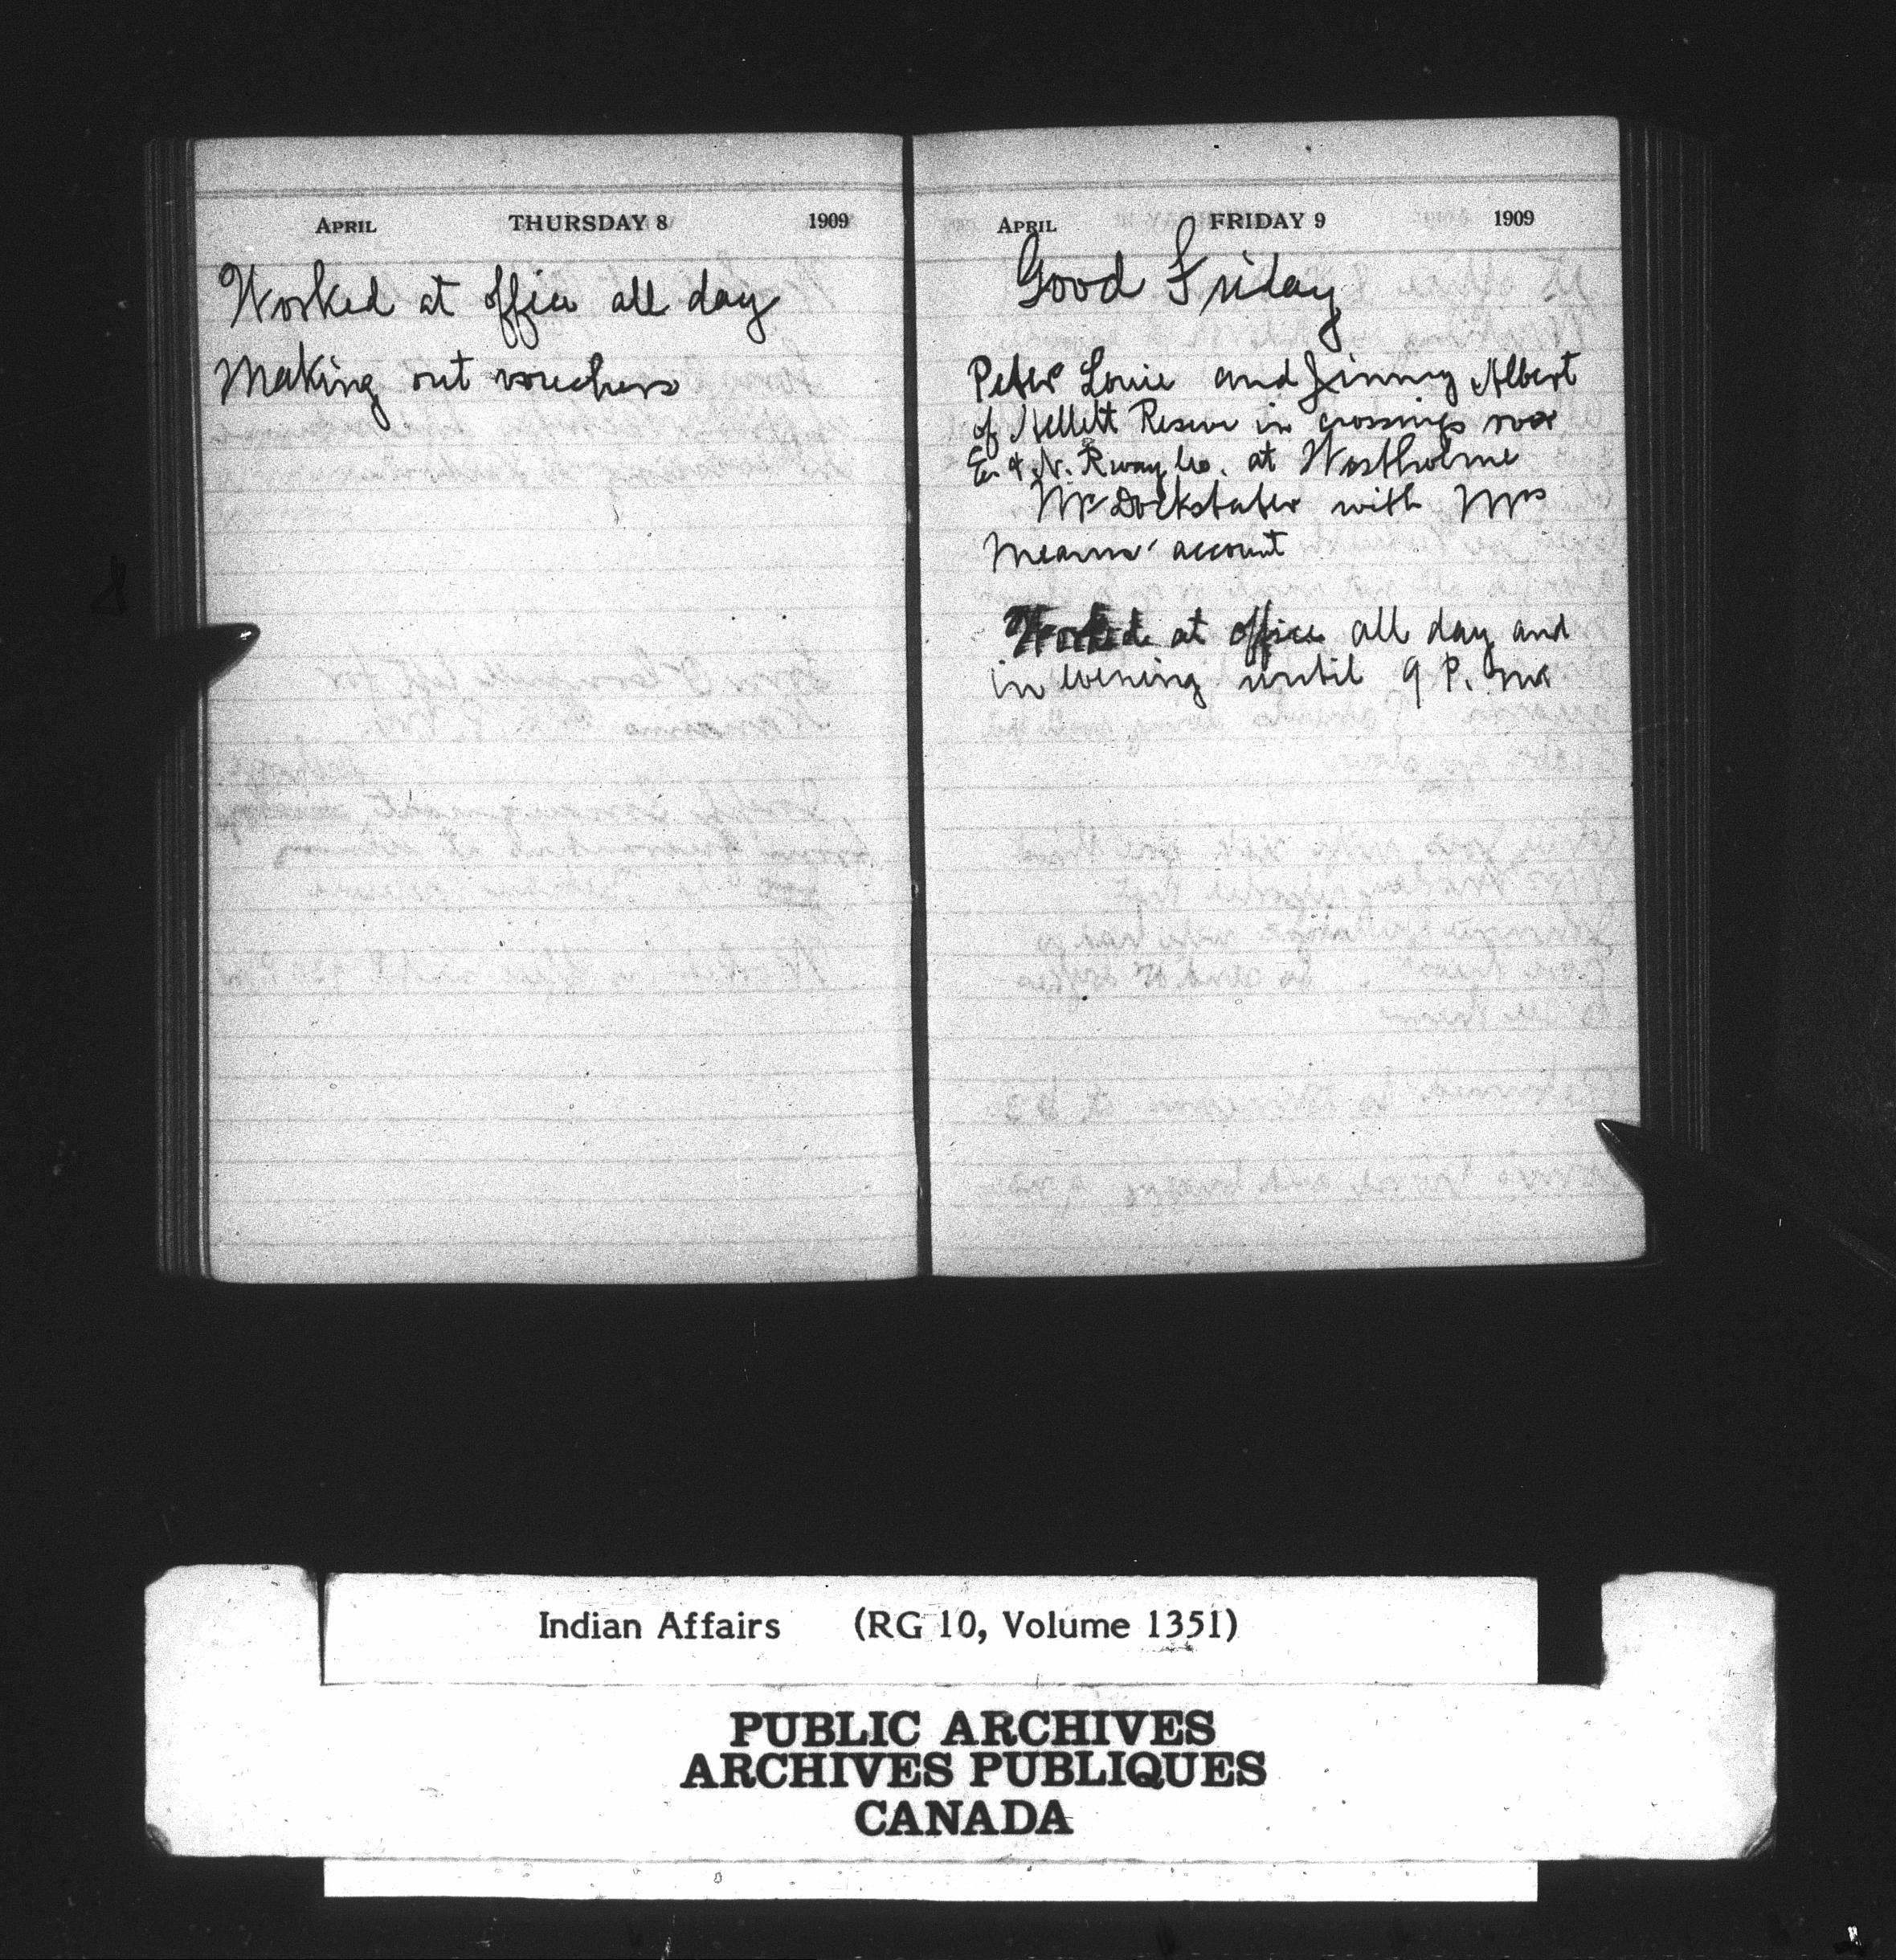 APRIL THURSDAY 8 1909
Worked at office all day
Making out vouchers
APRIL FRIDAY 9 1909
Good Friday
Peter Louie and Jimmy Albert
of Hellett Reserve in crossings over
E. & N. Rway Co. at Westholme
Mr Dockstater with Mrs
Means' account
Worked at office all day and
in evening until 9 P.M.
Indian Affairs (RG 10, Volume 1351)
PUBLIC ARCHIVES
ARCHIVES PUBLIQUES
CANADA